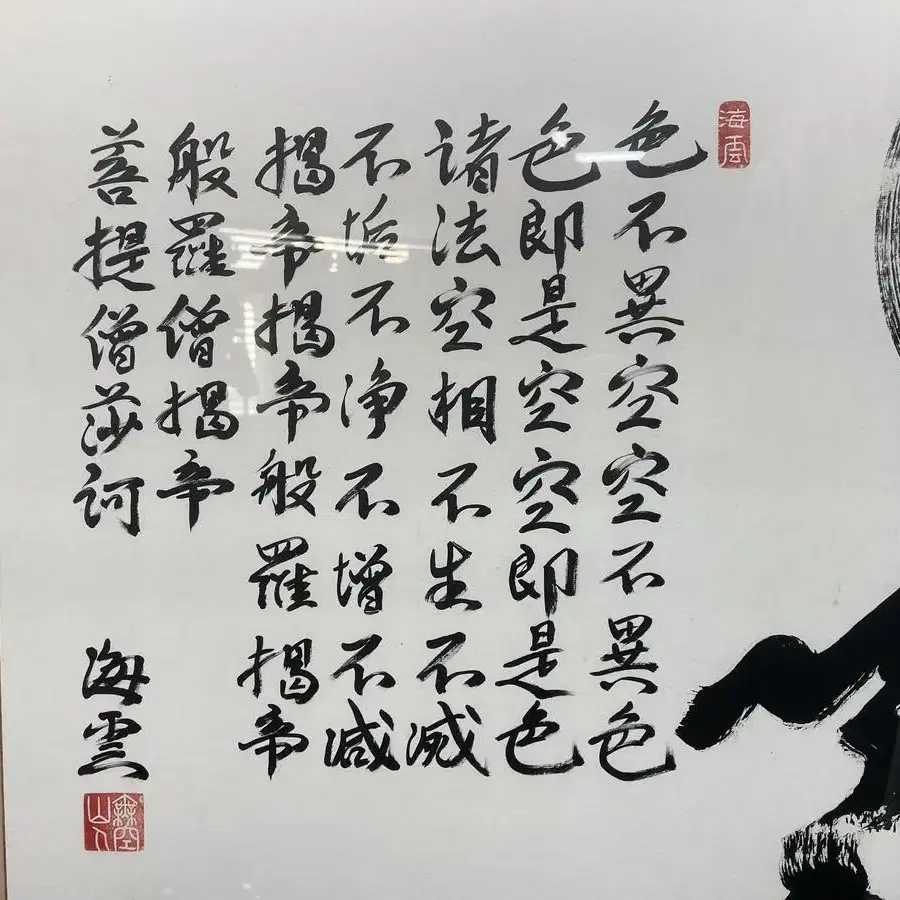 海雲
色不異空空不異色
色即是空空即是色
諸法空相不生不滅
不垢不净不增不減
揭帝揭帝般羅揭帝
般羅僧揭帝
菩提僧莎訶
海雲
無空山人